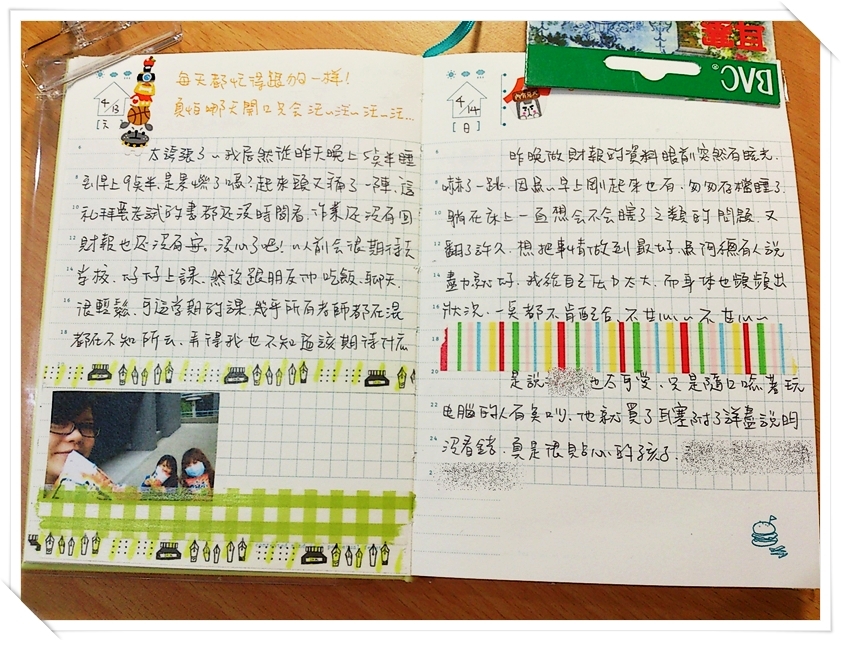 每天都忙得跟狗一樣!
真怕哪天開口只會汪~汪~汪~汪...
4/13
太誇張了~我居然從昨天晚上5點半睡
到早上9點半是累慘了嗎?起來頭又痛了一陣,這
禮拜要考試的書都還沒時間看,作業還沒有回
財報也還沒有弄。沒心了吧!~以前會很期待去
學校,好好上課,然後跟朋友吃飯、聊天,
很輕鬆。可這學期的課,幾乎所有老師都在混
都在不知所云,弄得我也不知道該期待什麼
BAC
耳塞
4/14
[日]
昨晚做財報的資料眼前突然有眩光,
嚇了一跳。因為~早上剛起來也有,匆匆存檔睡了
躺在床上一直想會不會瞎了之類的問題,又
翻了許久。想把事情做到最好,雖阿總有人說
盡力就好。我給自己壓力太大,而身體也頻頻出
狀況,一點都不肯配合、不甘心~不甘心~
是說 也太可愛,只是隨口唸著玩
电腦的人有臭吵,他就買了耳塞附了詳盡說明
沒看錯,真是很貼心的孩子。